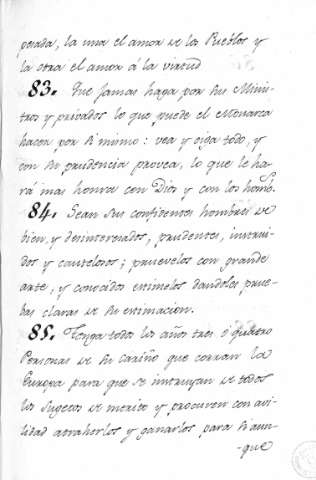 pesada, la una el amor de los Pueblos y
la otra el amor á la virtud
83. Que jamas haga por sus Minis-
tros y privados lo que puede el Monarca
hacer por si mismo: vea y oiga todo, y
con su prudencia provea, lo que le ha-
rá mas honra con Dios y con los homb.
84. Sean sus confidentes hombres de
bien, y desinteresados, prudentes, instrui-
dos y cautelosos; pruevelos con grande
arte, y conocidos estimelos dandoles prue-
bas claras de su estimacion.
85. Tenga todos los años tres ó quatro
Personas de su cariño que corran la
Europa para que se instruyan de todos
los sugetos de merito y procuren con avi-
lidad atraherlos y ganarlos para si aun-
-que